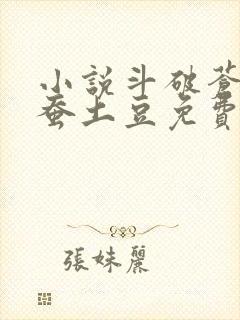 小説斗破蒼
蚕土豆免費
張妹麗